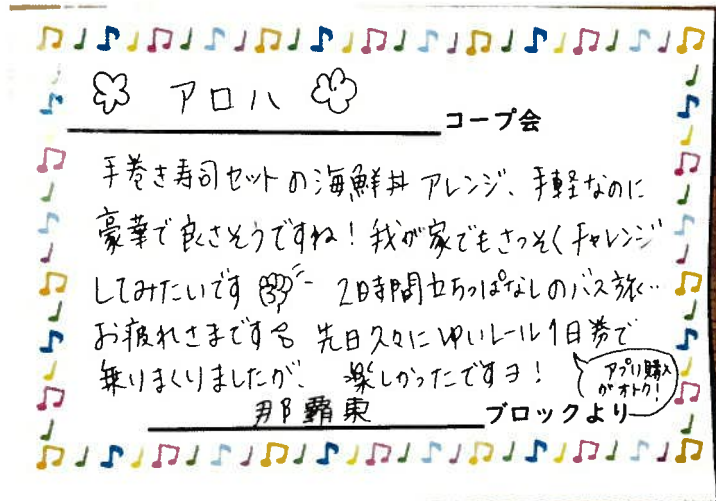 アロハ コープ会
手巻き寿司セットの海鮮丼アレンジ、手軽なのに
豪華で良さそうですね！我が家でもさっそくチャレンジ
してみたいです 2時間立ちっぱなしのバス旅…
お疲れさまです 先日久々にゆいレール1日券で
乗りまくりましたが、楽しかったですヨ！
アプリ購入
がオトク！
那覇東 ブロックより